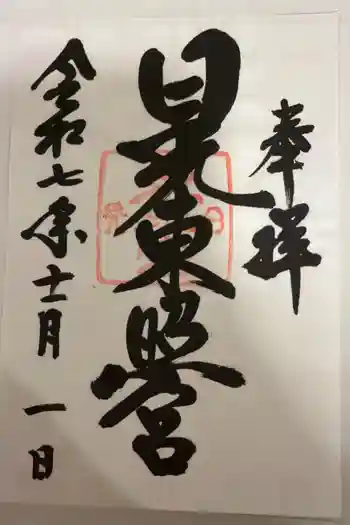 奉拝
日光東照宮
令和七年十一月一日